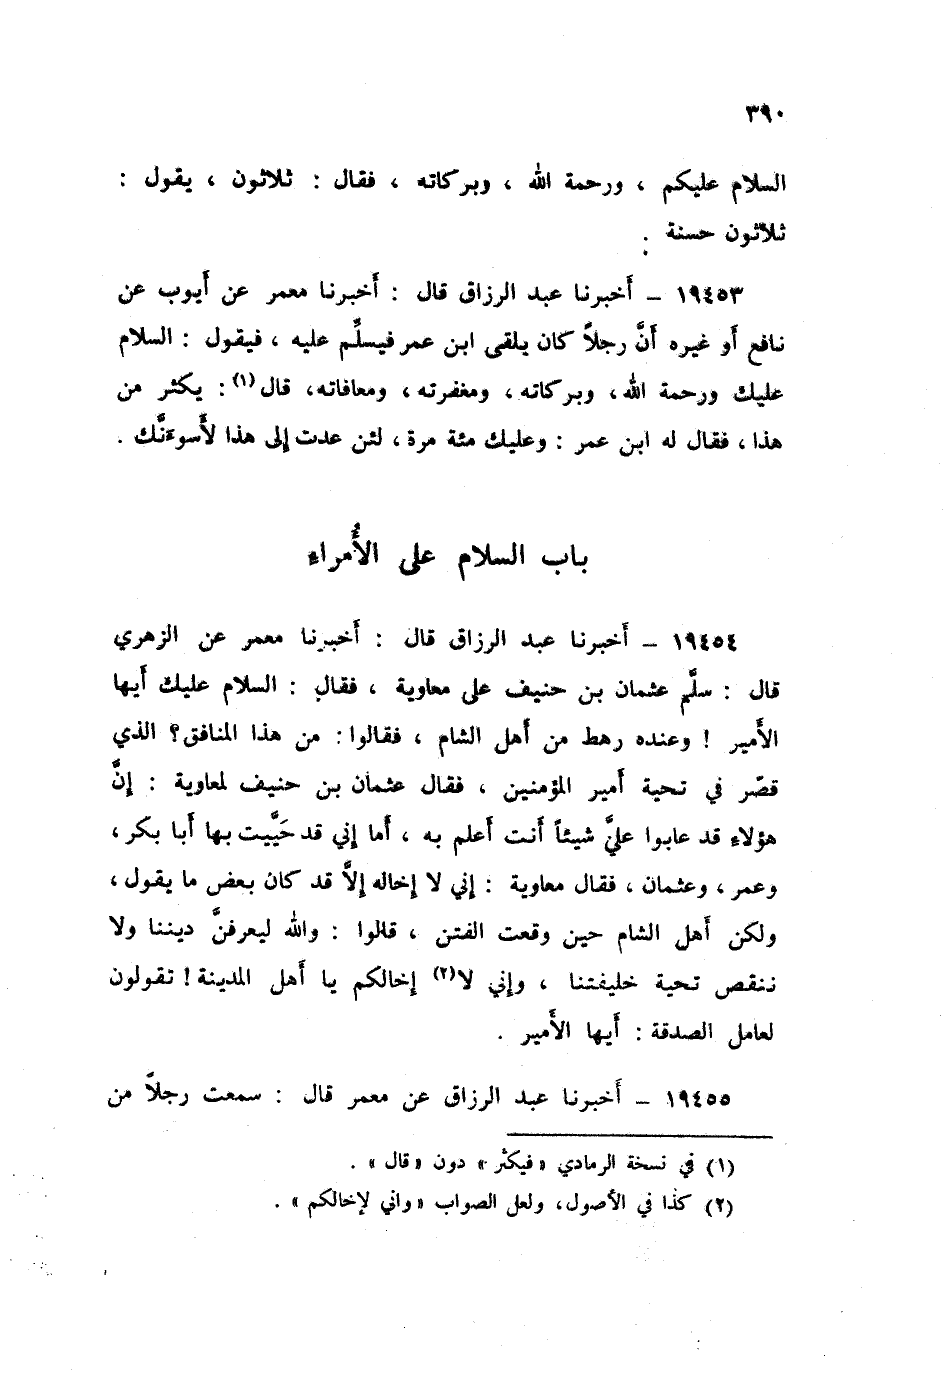 ٣٩٠
السلام عليكم ، ورحمة الله ، وبركاته ، فقال : ثلاثون ، يقول :
ثلاثون حسنة .
١٩٤٥٣ – أخبرنا عبد الرزاق قال : أخبرنا معمر عن أيوب عن
نافع أو غيره أنَّ رجلاً كان يلقى ابن عمر فيسلِّم عليه ، فيقول : السلام
عليك ورحمة الله ، وبركاته ، ومغفرته ، ومعافاته، قال(١) : يكثر من
هذا ، فقال له ابن عمر : وعليك مئة مرة ، لئن عدت إلى هذا لأسوءنَّك .
باب السلام على الأُمراء
١٩٤٥٤ – أخبرنا عبد الرزاق قال : أخبرنا معمر عن الزهري
قال : سلَّم عثمان بن حنيف على معاوية ، فقال : السلام عليك أيها
الأمير ! وعنده رهط من أهل الشام ، فقالوا : من هذا المنافق؟ الذي
قصّر في تحية أمير المؤمنين ، فقال عثمان بن حنيف لمعاوية : إنَّ
هؤلاء قد عابوا عليَّ شيئاً أنت أعلم به ، أما إني قد حَيَّيت بها أبا بكر ،
وعمر ، وعثمان ، فقال معاوية : إني لا إخاله إلاَّ قد كان بعض ما يقول ،
ولكن أهل الشام حين وقعت الفتن ، قالوا : والله ليعرفنَّ ديننا ولا
ننقص تحية خليفتنا ، وإني لا(٢) إخالكم يا أهل المدينة ! تقولون
لعامل الصدقة : أيها الأمير .
١٩٤٥٥ – أخبرنا عبد الرزاق عن معمر قال : سمعت رجلاً من
(١) في نسخة الرمادي « فيكثر » دون « قال » .
(٢) كذا في الأصول، ولعل الصواب « واني لإخالكم » .